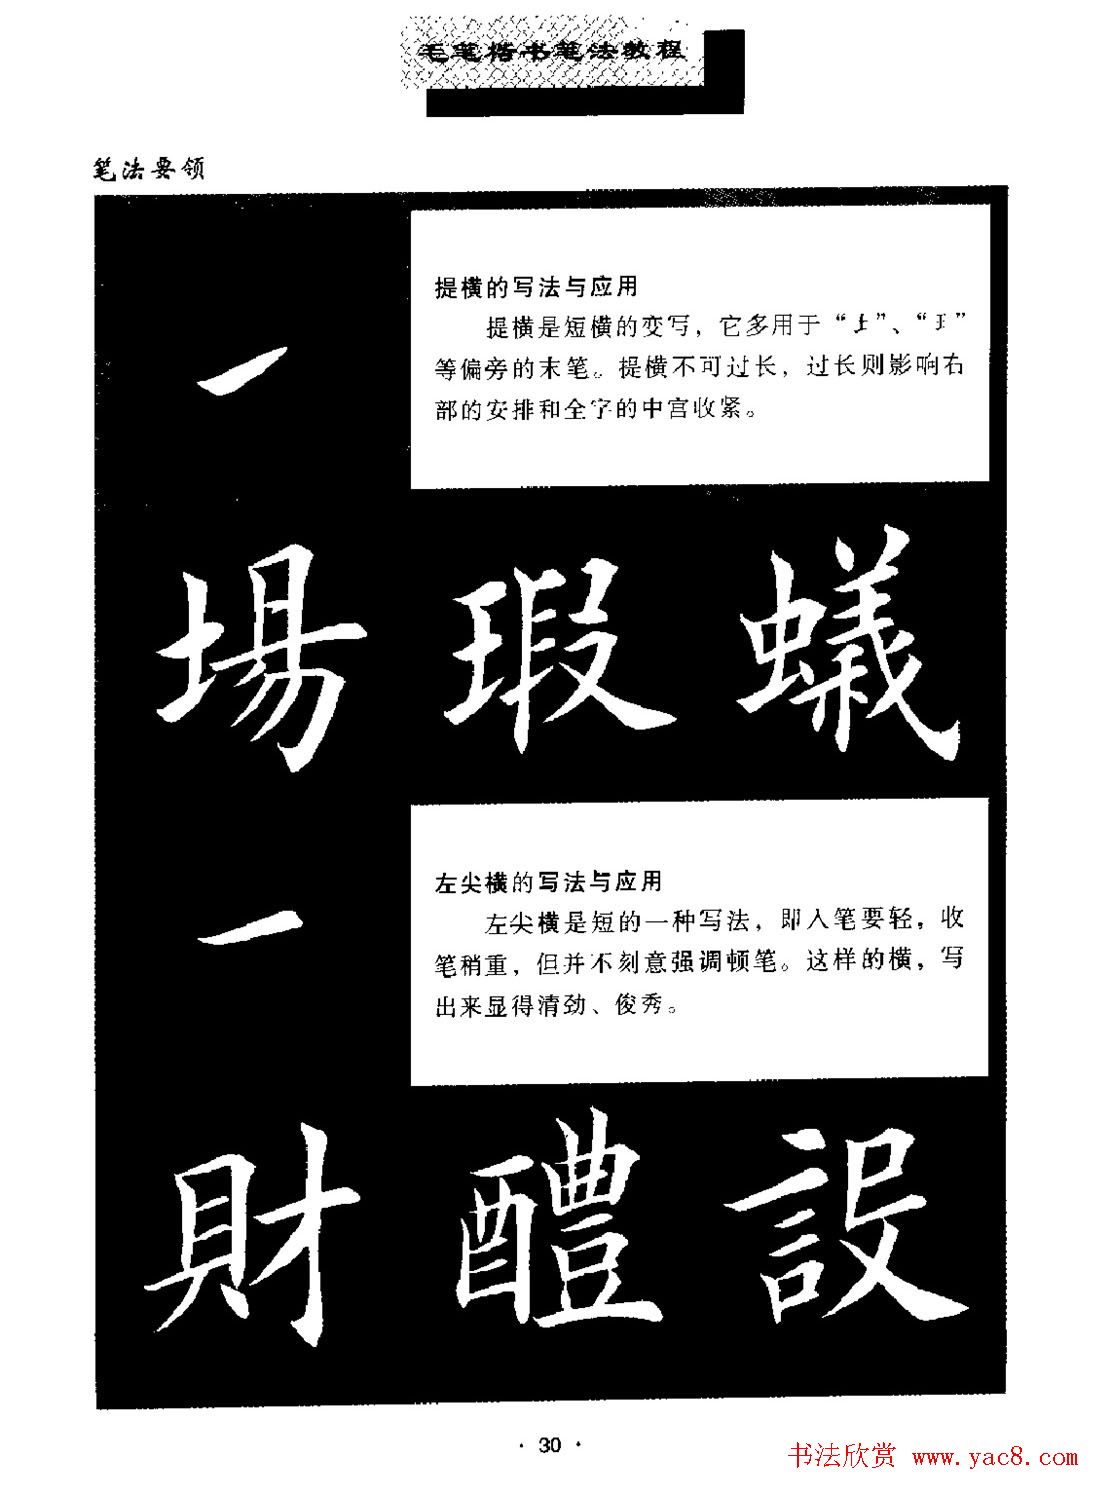 毛笔楷书笔法教程
笔法要领
一
提横的写法与应用
提横是短横的变写，它多用于“土”、“王”
等偏旁的末笔。提横不可过长，过长则影响右
部的安排和全字的中宫收紧。
場 瑕 蟻
一
左尖横的写法与应用
左尖横是短的一种写法，即入笔要轻，收
笔稍重，但并不刻意强调顿笔。这样的横，写
出来显得清劲、俊秀。
財 醴 設
·30·
书法欣赏 www.yac8.com